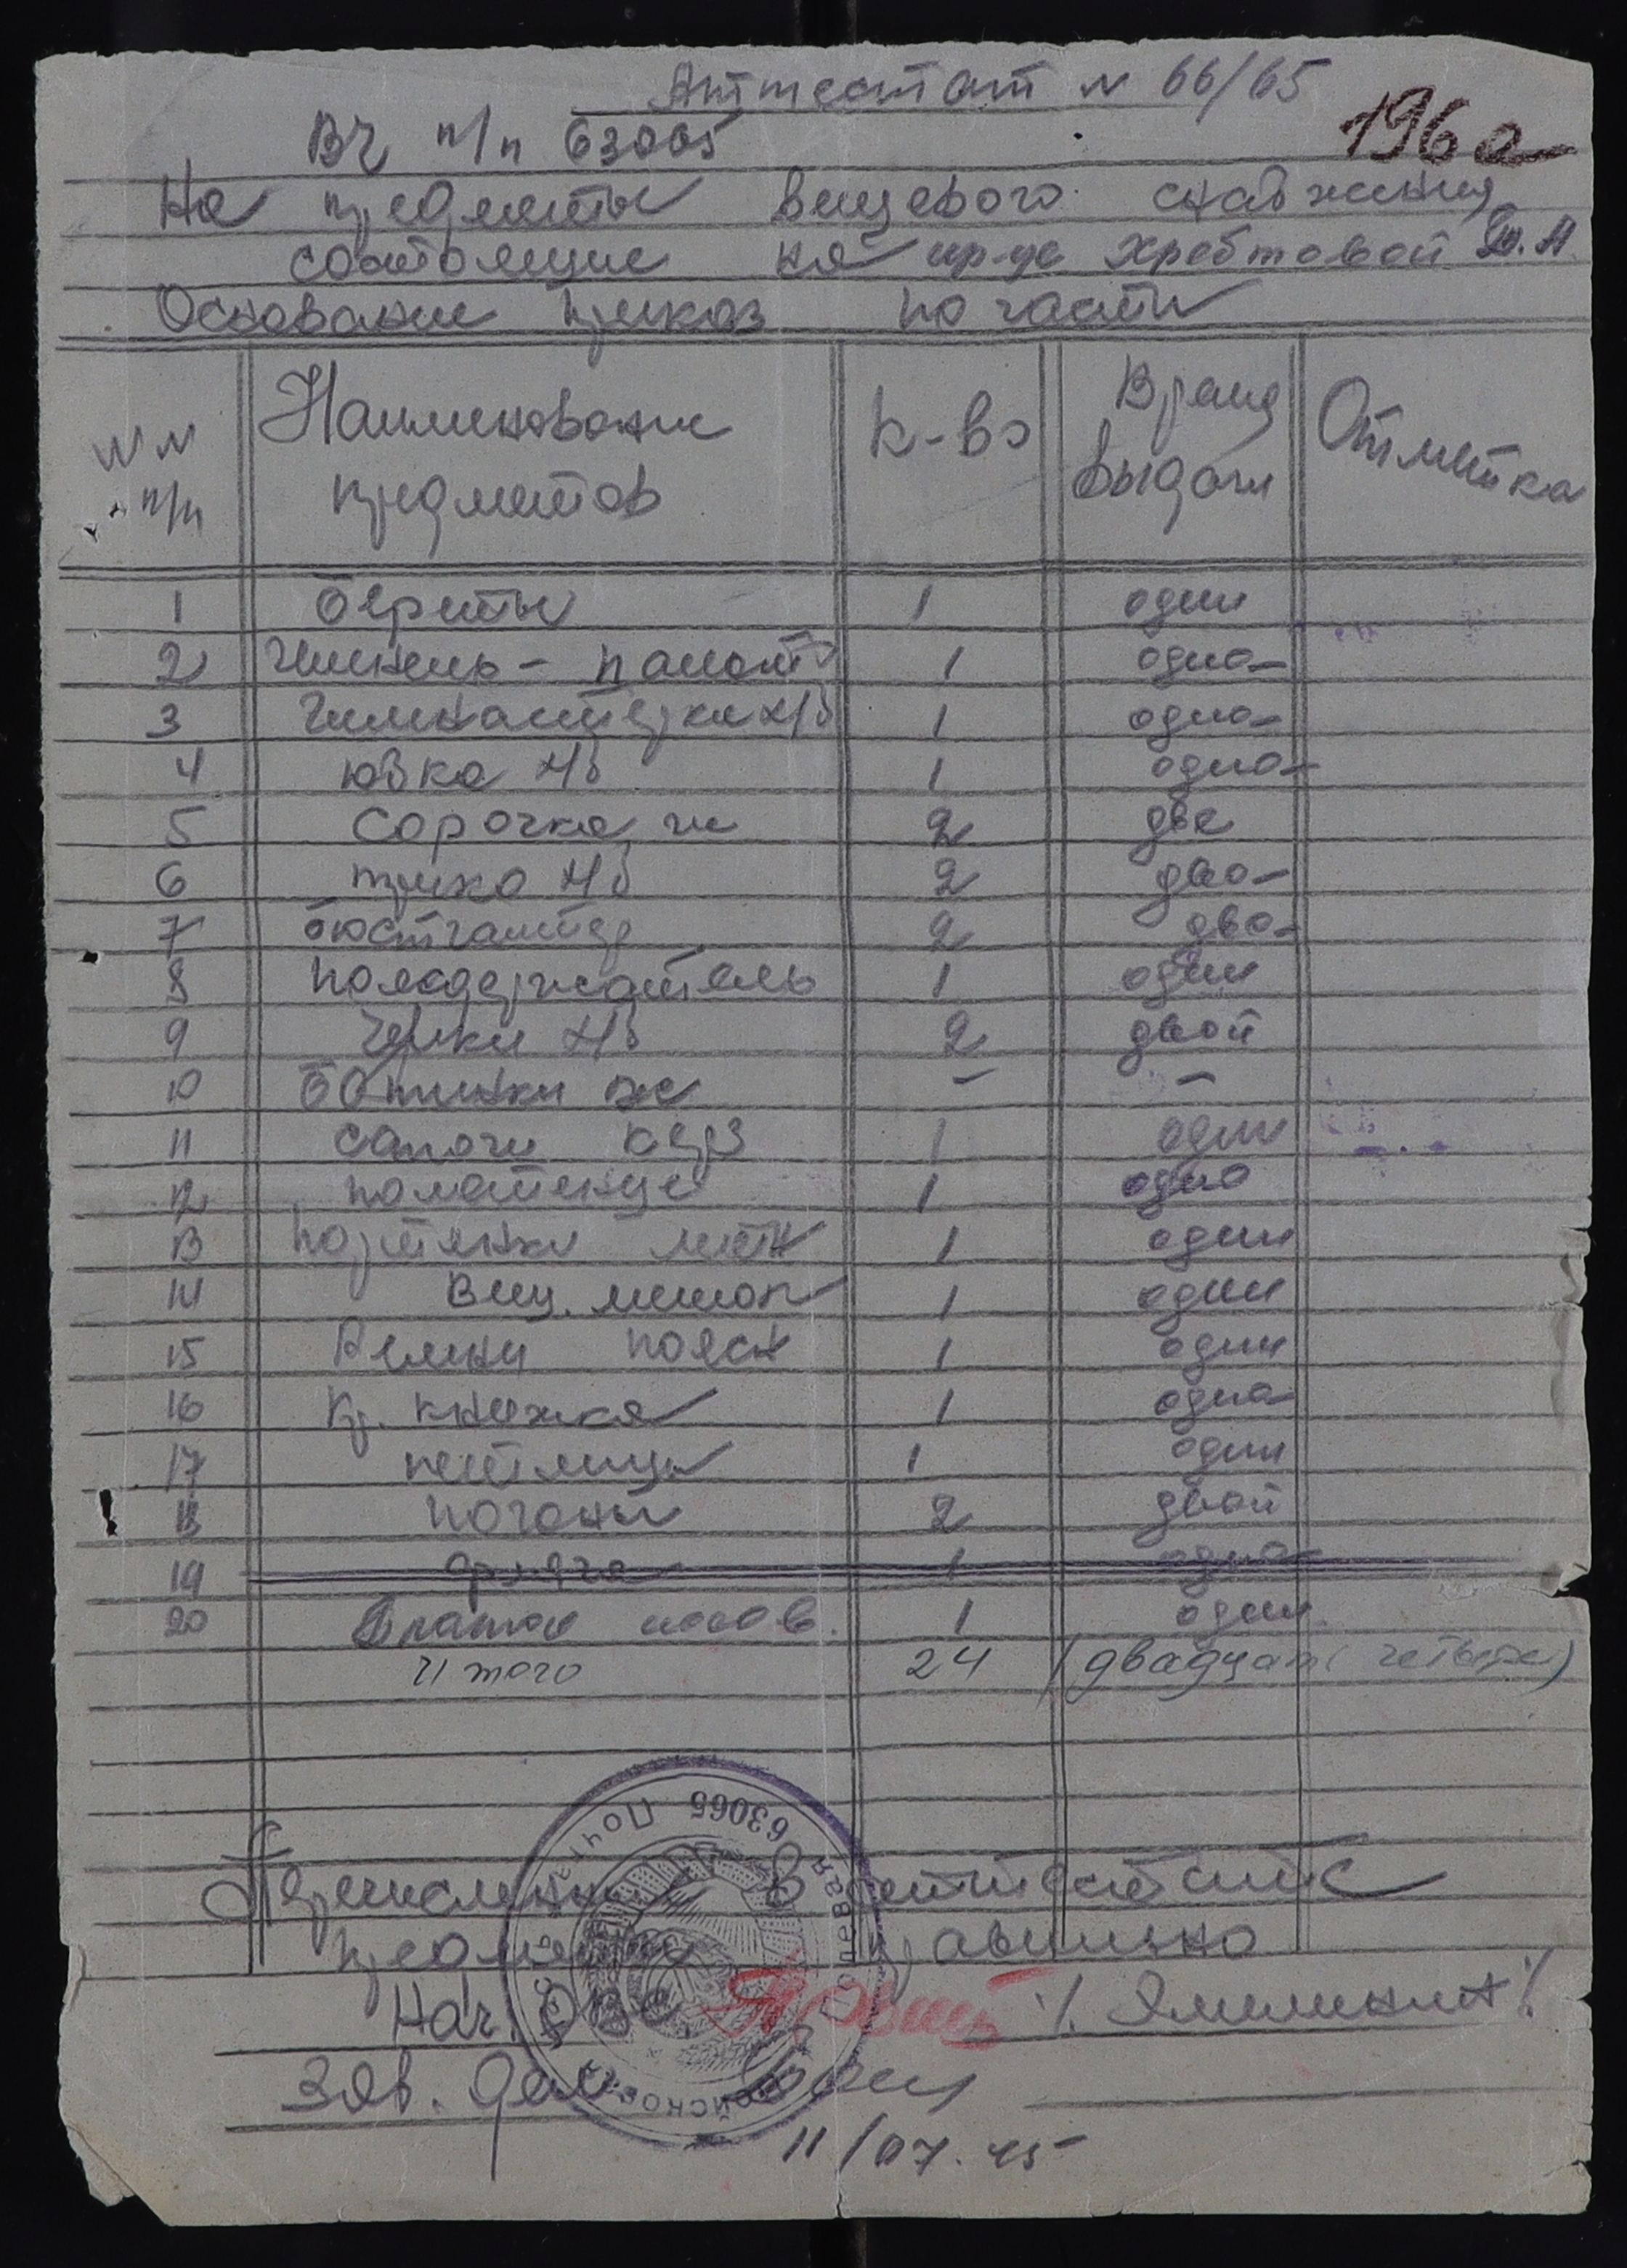 Аттестат № 66/65
ВЧ п/п 63065
196а
На предметы вещевого снабжения
состоящие на кр-це Хребтовой
Основание приказ по части
№ № п/п Наименование предметов к-во Время выдачи Отметка
1 береты 1 один
2 шинель - пальто 1 одна
3 гимнастерки х/б 1 одна
4 юбка х/б 1 одна
5 сорочка 2 две
6 трико х/б 2 два
7 бюстгалтер 2 два
8 поясодержатель 1 один
9 чулки х/б 2 двой
10 ботинки - -
11 сапоги кирз 1 один
12 полотенце 1 одно
13 портянки летн 1 один
14 вещ. мешок 1 один
15 Ремни поясн 1 один
16 Кр. книжка 1 одна
17 петлицы 1 один
18 погоны 2 двой
19 фляга 1 одна
20 Платок носов. 1 один
Итого 24 (двадцать четыре)
Перечисленные в аттестате
предметы правильно
Нач. ОВС
Зав. дел
11/07.45
63065 Полевая Почта